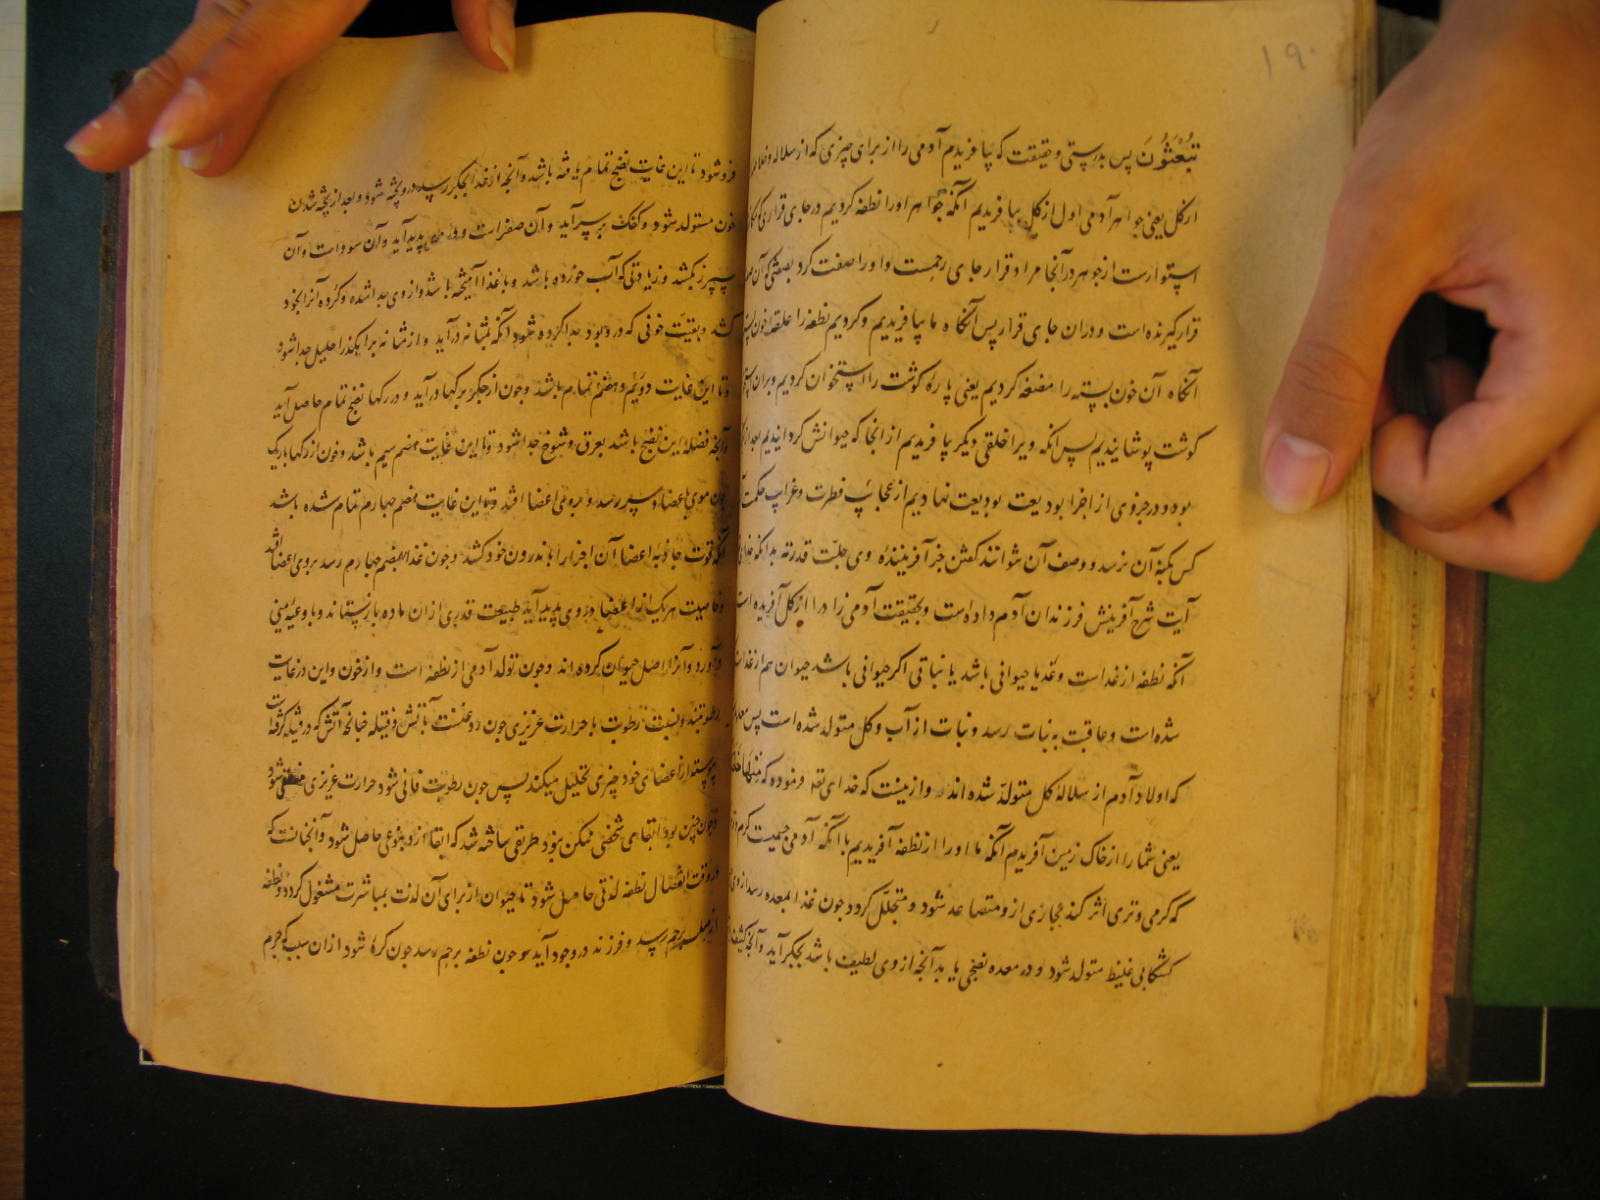 ۱۹۰
تُبْعَثُونَ پس بدرستی و حقیقت که بیافریدم آدمی را از برای چیزی که از سلاله و خلاصه
از کل یعنی جواهر آدمی اول از کل بیافریدیم آنکه جواهر اورا نطفه کردیم در جای قراری که
استوارست از جوهر در آنجا مراد قرار جای رحمست و اورا صفت کرد بصفتی که آن
قرار کیرنده است و دران جای قرار پس آنکاه ما بیافریدیم و کردیم نطفه را علقه خون
آنکاه آن خون بسته را مضغه کردیم یعنی پاره کوشت را استخوان کردیم و بران
کوشت پوشانیدیم پس آنکه ویرا خلقی دیکر بیافریدیم از انجا که حیوانش کردانیدیم بعد از
بود و در جزوی از اجزا بودیعت بودیعت نهادیم از عجائب فطرت و غرایب حکمت
کس بکنه آن نرسد و وصف آن نتوانند کفتن جز آفریننده وی جلّت قدرته بدانکه
آیت شرح آفرینش فرزندان آدم داده است و بحقیقت آدمی زاد را از کل آفریده است
آنکه نطفه از غداست و غدیا حیوانی باشد یا نباتی اکر حیوانی باشد حیوان هم از غداست
شده است و عاقبت به نبات رسد و نبات از آب و کل متولد شده است پس معلوم
که اولاد آدم از سلالهٔ کل متولدّ شده اند و ازینست که خدای تعه فرموده که مِنْهَا
یعنی شما را از خاک زمین آفریدم آنکه ما اورا از نطفه آفریدیم با آنکه آدمی جمیت کرم
که کرمی و تری اثر کند بخاری ازو متصاعد شود و متحلّل کردد جون غذا بمعده رسد از وی
کشکابی غلیظ متولد شود و در معده نضجی یابد آنجه از وی لطیف باشد بجکر آید و آنجه کثیف
فروشود تا این غایت نضج تمام یافته باشد و آنجه از غدا بجکر رسید درو پخته شود و بعد از پخته شدن
خون متولد شود و کفک بر سر آید و آن صفراست و دردی پدید آید و آن سوداست و آن
سپرز بکشد و زیادتی که آب خورده باشد و با غذا آمیخته باشد و از وی جدا شده و کرده آنرا بخود
کشد و بقیّت خونی که درو بود جدا کرده شود آنکه بمثانه درآید و از مثانه برآ بکذر احلیل جدا شود
و تا این غایت دویم و هضم تمام باشد و جون از جکر برکها درآید و در رکها نضج تمام حاصل آید
و آنجه فضله این نضج باشد بعرق و شوخ جدا شود و تا این غایت هضم سیم باشد و خون از رکها باریک
جون موی باعضا و سر رسد و بروی اعضا افتد و تا این غایت هضم جهارم تمام شده باشد
آنکه قوت جاذبه اعضا آن اجزا را باندرون خود کشد و جون غذا بهضم جهارم رسد بروی اعضا افتد
و خاصیت هریک از اعضا در وی پدید آید طبیعت قدری ازان ماده باز ستاند و باوعیه منی
درآورد و آنرا اصل حیوان کرده اند و جون تولد آدمی از نطفه است و از خون و این در غایت
رطوبتند و نسبت رطوبت با حرارت غریزی جون روغنست با آتش و فتیله جنانجه آتش که در فتیله کرفته است
پیوسته از اعضای خود چیزی تحلیل میکند پس جون رطوبت فانی شود حرارت غریزی منطفی شود
و جون جنین بود ابقای شخصی ممکن نبود طریقی ساخته شد که ابقا ازو بنوعی حاصل شود و آنجنانست که
در وقت انفصال نطفه لذتی حاصل شود تا حیوان از برای آن لذت بمباشرت مشغول کردد و نطفه
از صلب برحم رسد و فرزند در وجود آید و جون نطفه برحم رسد جون کره شود ازان سبب که جرم